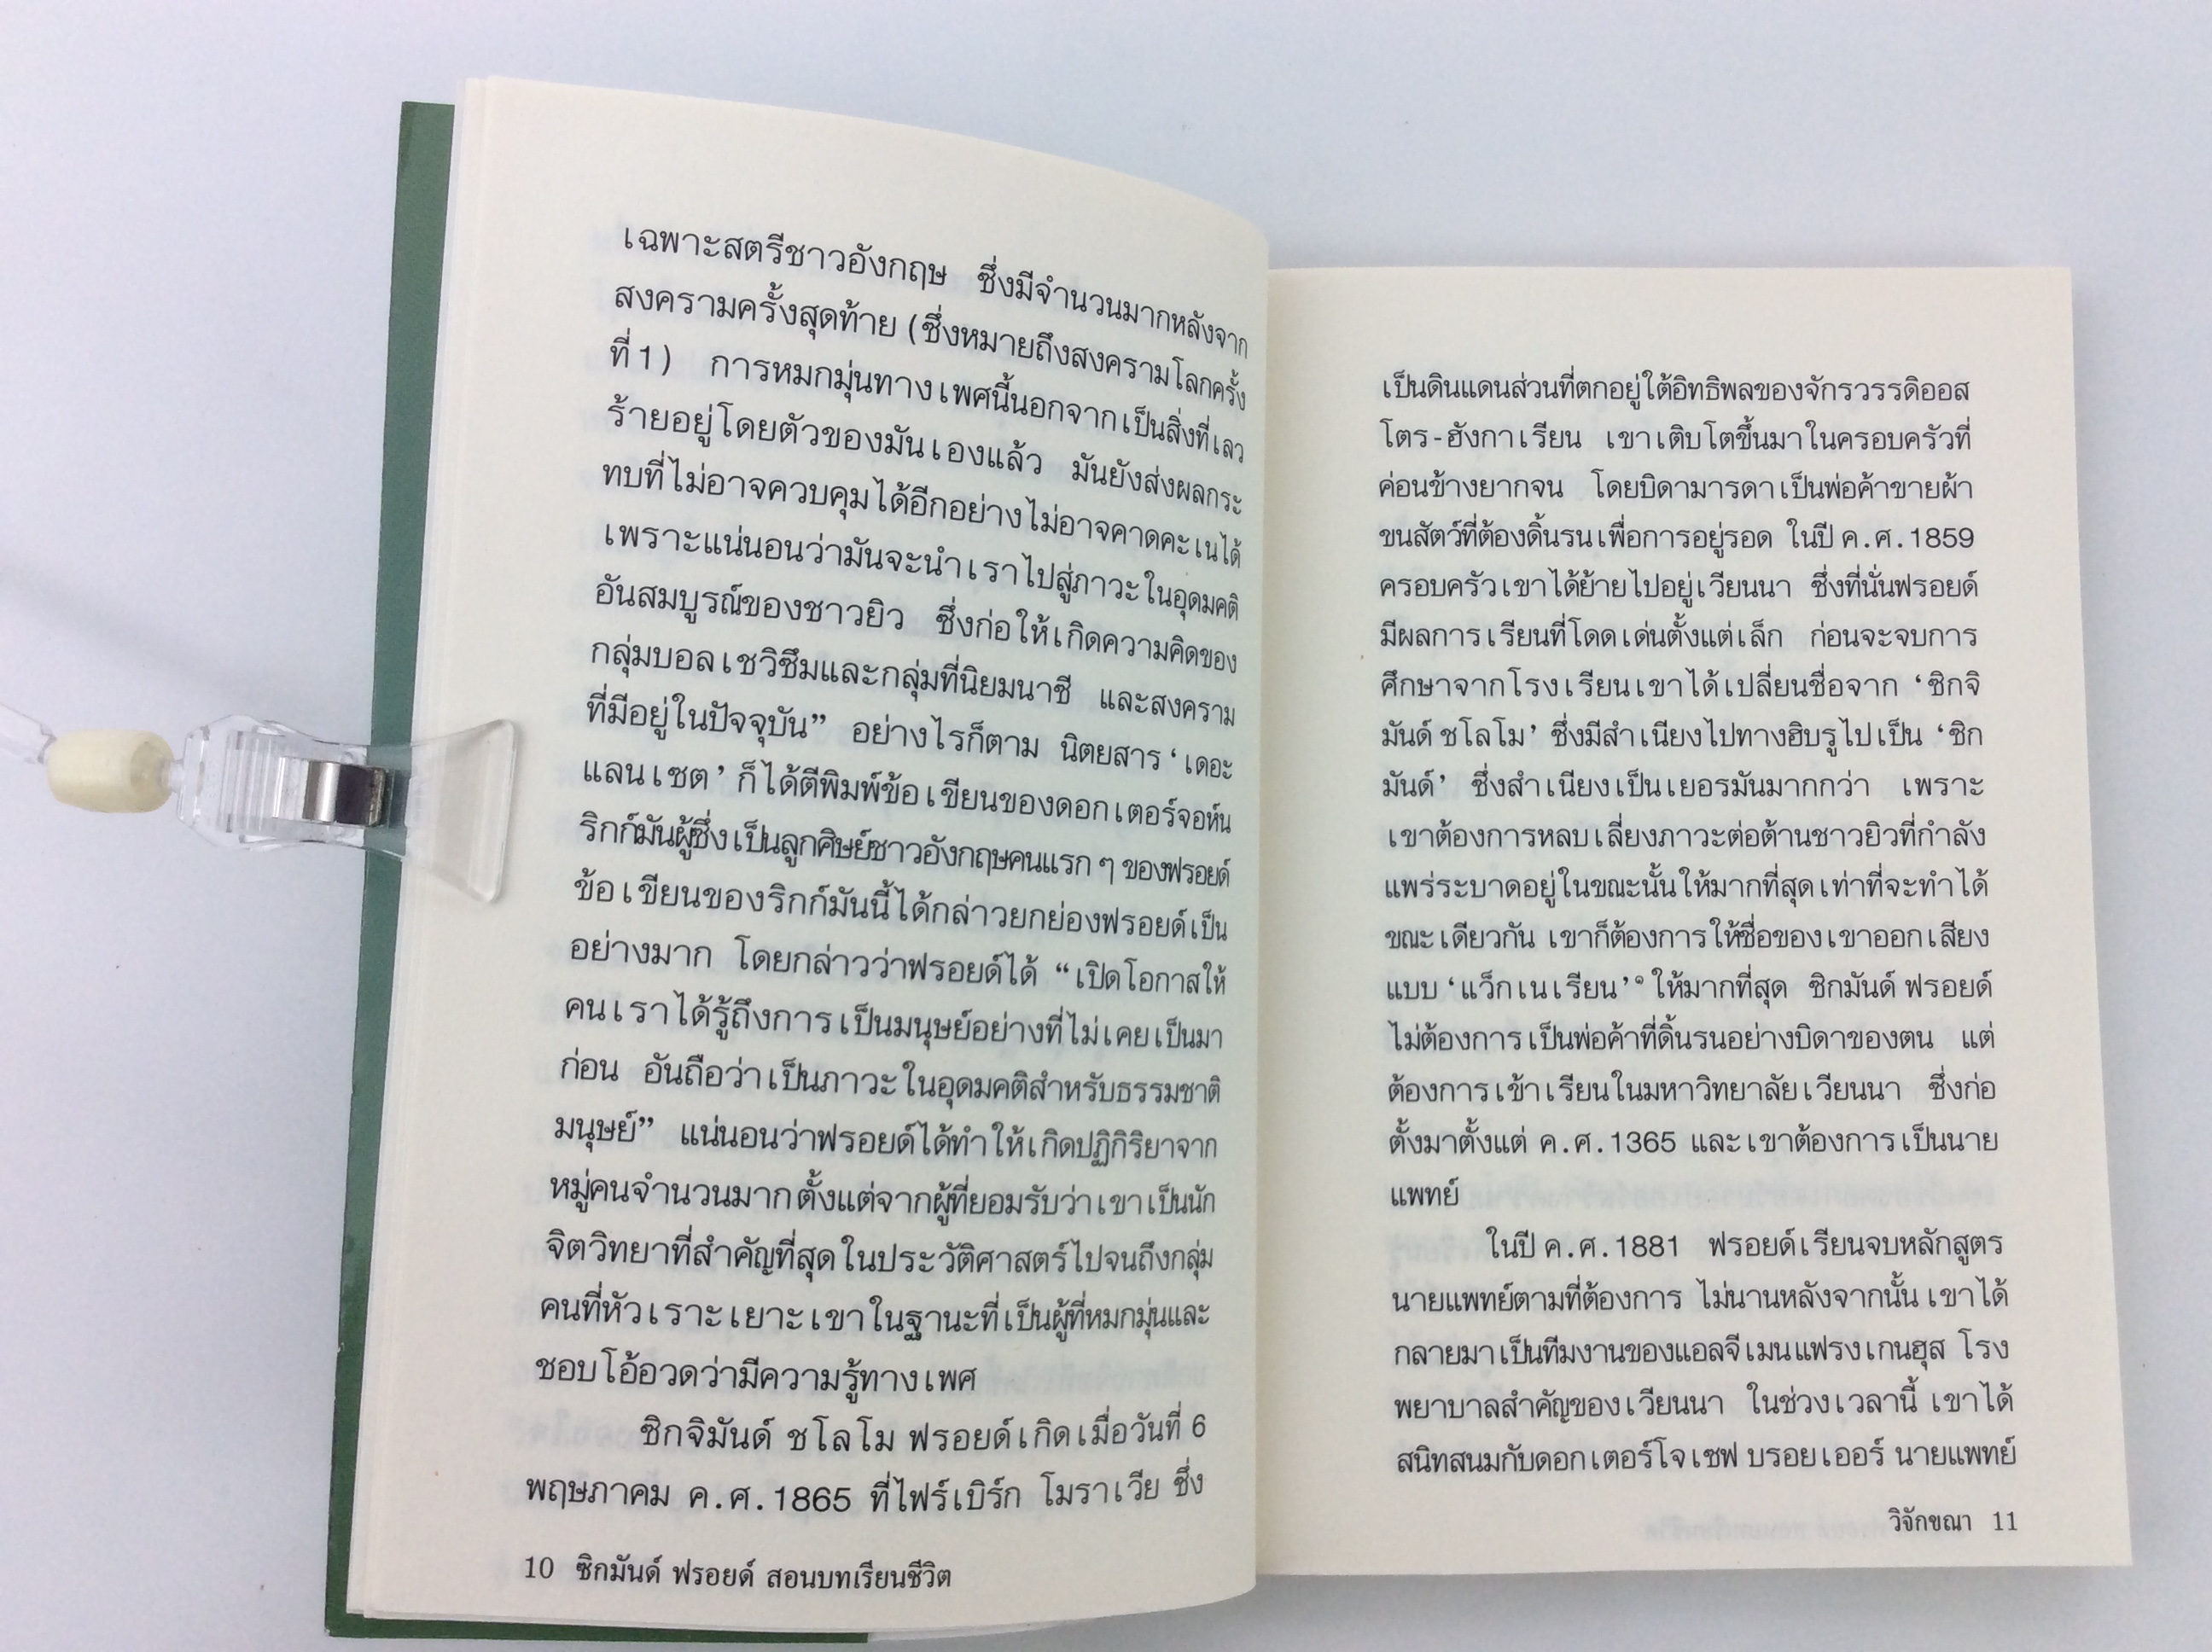 เฉพาะสตรีชาวอังกฤษ ซึ่งมีจำนวนมากหลังจาก
สงครามครั้งสุดท้าย (ซึ่งหมายถึงสงครามโลกครั้ง
ที่ 1) การหมกมุ่นทางเพศนี้นอกจากเป็นสิ่งที่เลว
ร้ายอยู่โดยตัวของมันเองแล้ว มันยังส่งผลกระ
ทบที่ไม่อาจควบคุมได้อีกอย่างไม่อาจคาดคะเนได้
เพราะแน่นอนว่ามันจะนำเราไปสู่ภาวะในอุดมคติ
อันสมบูรณ์ของชาวยิว ซึ่งก่อให้เกิดความคิดของ
กลุ่มบอลเชวิซึมและกลุ่มที่นิยมนาซี และสงคราม
ที่มีอยู่ในปัจจุบัน” อย่างไรก็ตาม นิตยสาร ‘เดอะ
แลนเซต’ ก็ได้ตีพิมพ์ข้อเขียนของดอกเตอร์จอห์น
ริกก์มันผู้ซึ่งเป็นลูกศิษย์ชาวอังกฤษคนแรก ๆ ของฟรอยด์
ข้อเขียนของริกก์มันนี้ได้กล่าวยกย่องฟรอยด์เป็น
อย่างมาก โดยกล่าวว่าฟรอยด์ได้ “เปิดโอกาสให้
คนเราได้รู้ถึงการเป็นมนุษย์อย่างที่ไม่เคยเป็นมา
ก่อน อันถือว่าเป็นภาวะในอุดมคติสำหรับธรรมชาติ
มนุษย์” แน่นอนว่าฟรอยด์ได้ทำให้เกิดปฏิกิริยาจาก
หมู่คนจำนวนมาก ตั้งแต่จากผู้ที่ยอมรับว่าเขาเป็นนัก
จิตวิทยาที่สำคัญที่สุดในประวัติศาสตร์ไปจนถึงกลุ่ม
คนที่หัวเราะเยาะเขาในฐานะที่เป็นผู้ที่หมกมุ่นและ
ชอบโอ้อวดว่ามีความรู้ทางเพศ
ซิกจิมันด์ ชโลโม ฟรอยด์เกิดเมื่อวันที่ 6
พฤษภาคม ค.ศ. 1865 ที่ไฟร์เบิร์ก โมราเวีย ซึ่ง
10 ซิกมันด์ ฟรอยด์ สอนบทเรียนชีวิต
เป็นดินแดนส่วนที่ตกอยู่ใต้อิทธิพลของจักรวรรดิออส
โตร-ฮังกาเรียน เขาเติบโตขึ้นมาในครอบครัวที่
ค่อนข้างยากจน โดยบิดามารดาเป็นพ่อค้าขายผ้า
ขนสัตว์ที่ต้องดิ้นรนเพื่อการอยู่รอด ในปี ค.ศ. 1859
ครอบครัวเขาได้ย้ายไปอยู่เวียนนา ซึ่งที่นั่นฟรอยด์
มีผลการเรียนที่โดดเด่นตั้งแต่เล็ก ก่อนจะจบการ
ศึกษาจากโรงเรียนเขาได้เปลี่ยนชื่อจาก ‘ซิกจิ
มันด์ ชโลโม’ ซึ่งมีสำเนียงไปทางฮิบรูไปเป็น ‘ซิก
มันด์’ ซึ่งสำเนียงเป็นเยอรมันมากกว่า เพราะ
เขาต้องการหลบเลี่ยงภาวะต่อต้านชาวยิวที่กำลัง
แพร่ระบาดอยู่ในขณะนั้นให้มากที่สุดเท่าที่จะทำได้
ขณะเดียวกัน เขาก็ต้องการให้ชื่อของเขาออกเสียง
แบบ ‘แว็กเนเรียน’๑ ให้มากที่สุด ซิกมันด์ ฟรอยด์
ไม่ต้องการเป็นพ่อค้าที่ดิ้นรนอย่างบิดาของตน แต่
ต้องการเข้าเรียนในมหาวิทยาลัยเวียนนา ซึ่งก่อ
ตั้งมาตั้งแต่ ค.ศ. 1365 และเขาต้องการเป็นนาย
แพทย์
ในปี ค.ศ. 1881 ฟรอยด์เรียนจบหลักสูตร
นายแพทย์ตามที่ต้องการ ไม่นานหลังจากนั้นเขาได้
กลายมาเป็นทีมงานของแอลจีเมนแฟรงเกนฮุส โรง
พยาบาลสำคัญของเวียนนา ในช่วงเวลานี้ เขาได้
สนิทสนมกับดอกเตอร์โจเซฟ บรอยเออร์ นายแพทย์
วิจักขณา 11